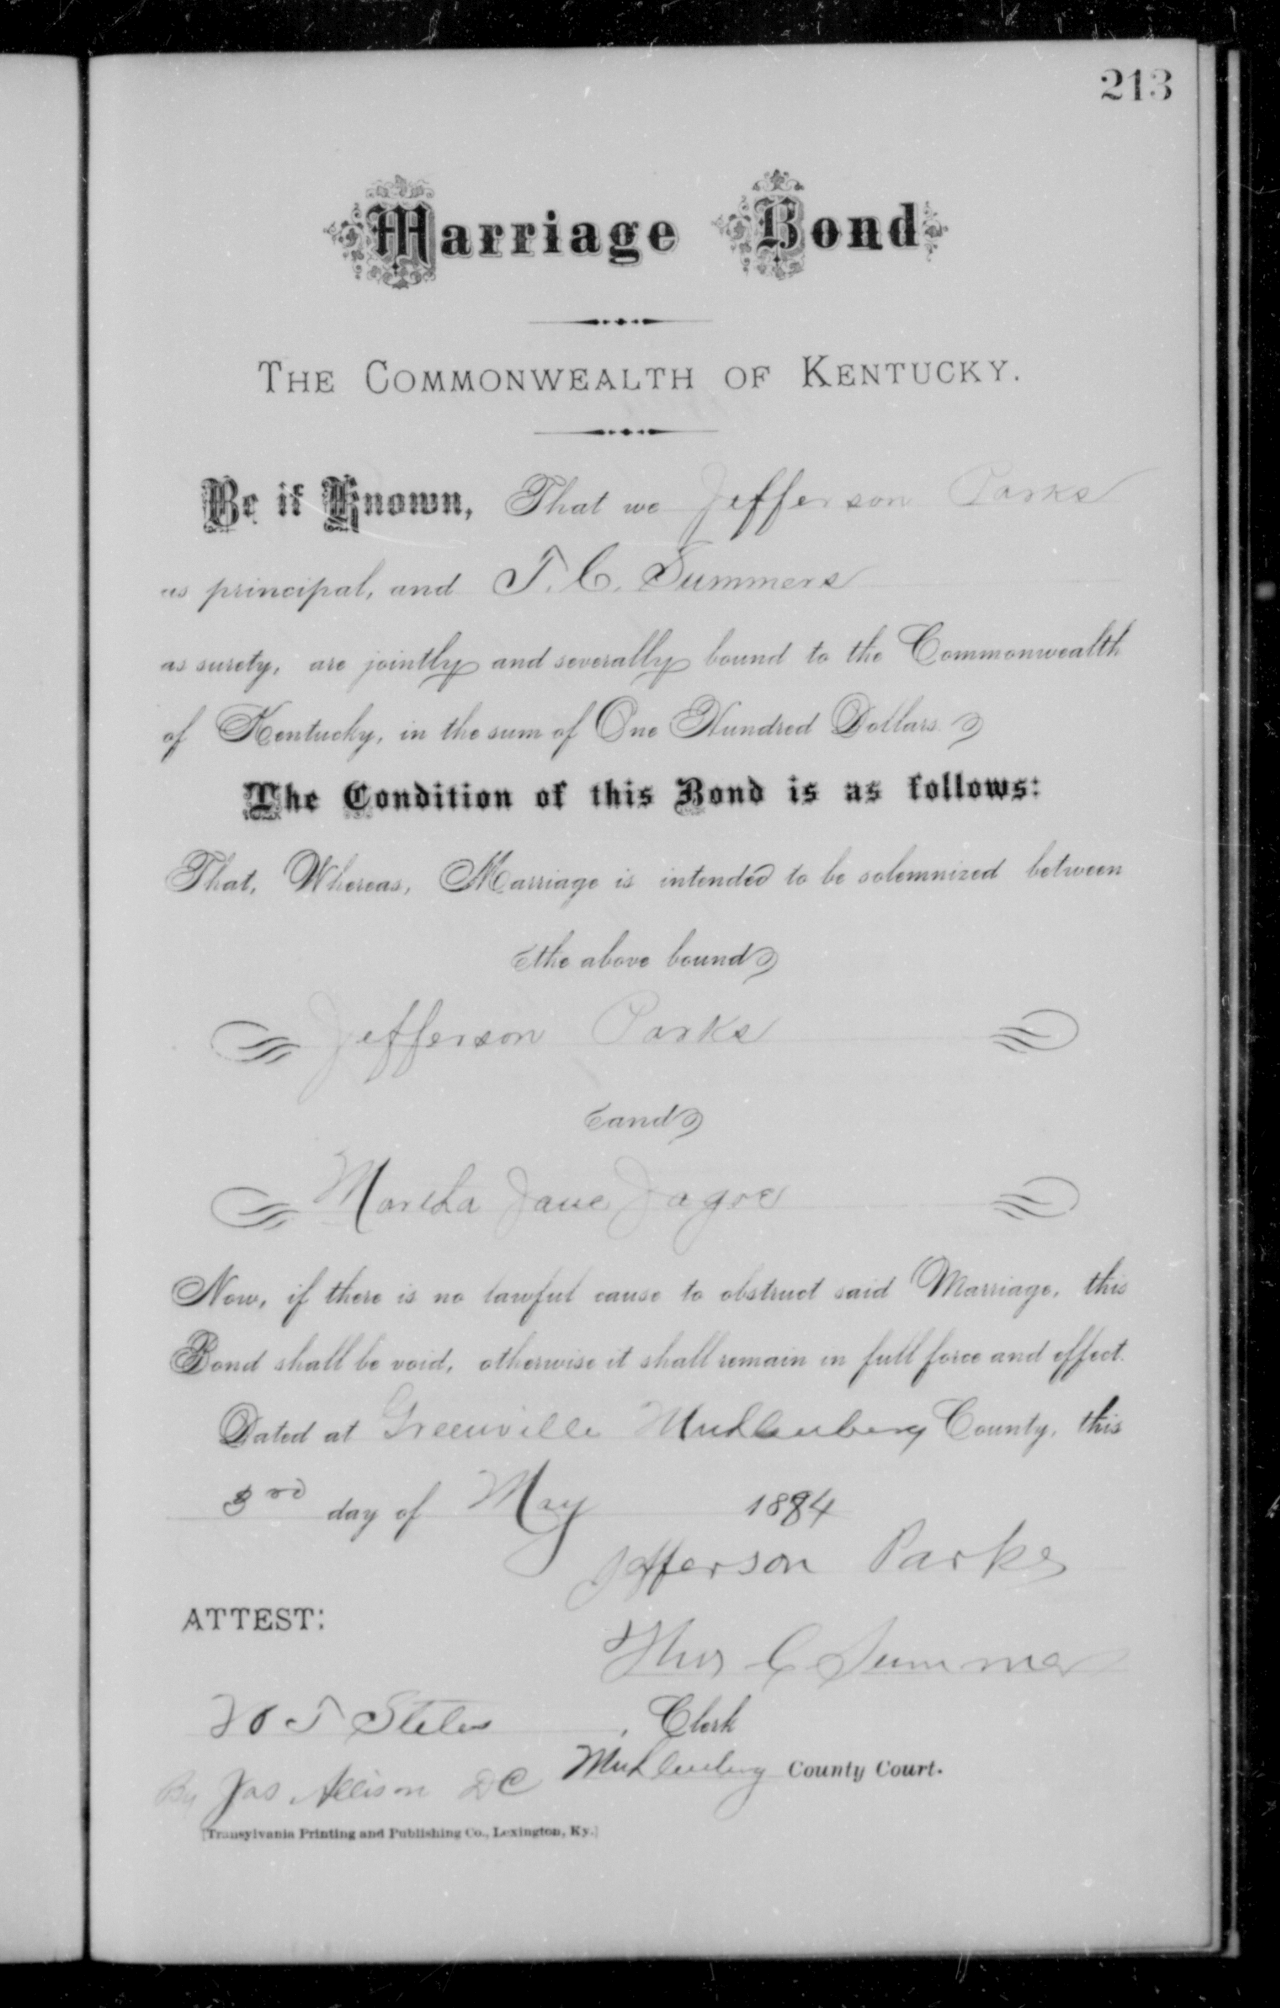 213
Marriage Bond
THE COMMONWEALTH OF KENTUCKY.
Be it Known, That we Jefferson Parks
as principal, and T. C. Summers
as surety, are jointly and severally bound to the Commonwealth
of Kentucky, in the sum of One Hundred Dollars.
The Condition of this Bond is as follows:
That, Whereas, Marriage is intended to be solemnized between
the above bound
Jefferson Parks
and
Martha Jane Jagoe
Now, if there is no lawful cause to obstruct said Marriage, this
Bond shall be void, otherwise it shall remain in full force and effect.
Dated at Greenville Muhlenberg County, this
3rd day of May 1884
Jefferson Parks
Thos C Summers
ATTEST:
W T Stiles, Clerk
Muhlenberg County Court.
By Jas Allison DC
[Transylvania Printing and Publishing Co., Lexington, Ky.]